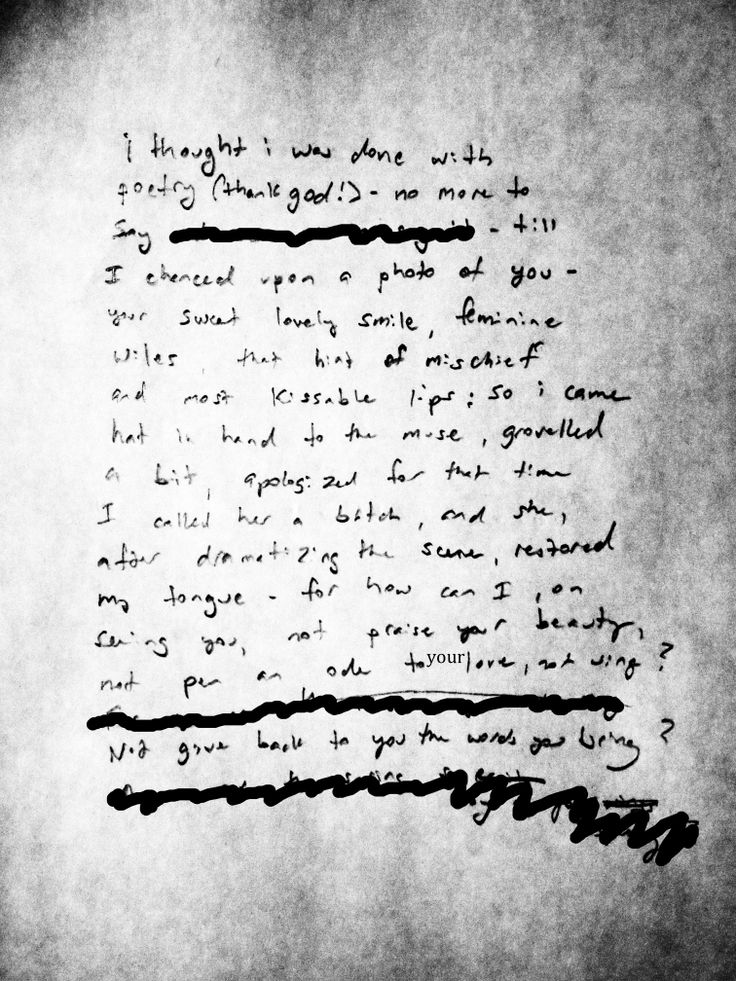 i thought i was done with
poetry (thank god!) - no more to
say - till
I chanced upon a photo of you -
your sweet lovely smile, feminine
wiles, that hint of mischief
and most kissable lips; so i came
hat in hand to the muse, grovelled
a bit, apologized for that time
I called her a bitch, and she,
after dramatizing the scene, restored
my tongue - for how can I, on
seeing you, not praise your beauty,
not pen an ode to your love, not sing?
Not give back to you the words you bring?